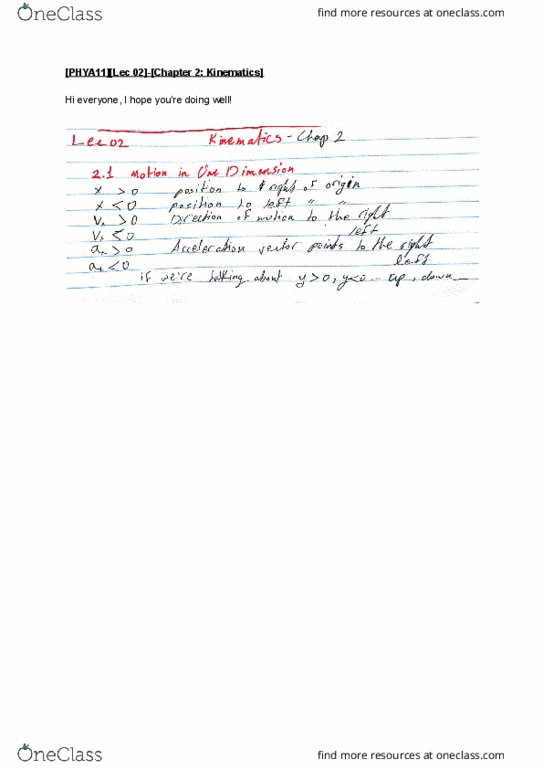 OneClass
find more resources at oneclass.com
[PHYA11][Lec 02]-[Chapter 2: Kinematics]
Hi everyone, I hope you're doing well!
Lec 02 Kinematics - Chap 2
2.1 Motion in One Dimension
x > 0 position to right of origin
x < 0 position to left " "
Vx > 0 Direction of motion to the right
Vx < 0 left
ax > 0 Acceleration vector points to the right
ax < 0 left
if we're talking about y > 0, y < 0 ... up, down
OneClass
find more resources at oneclass.com